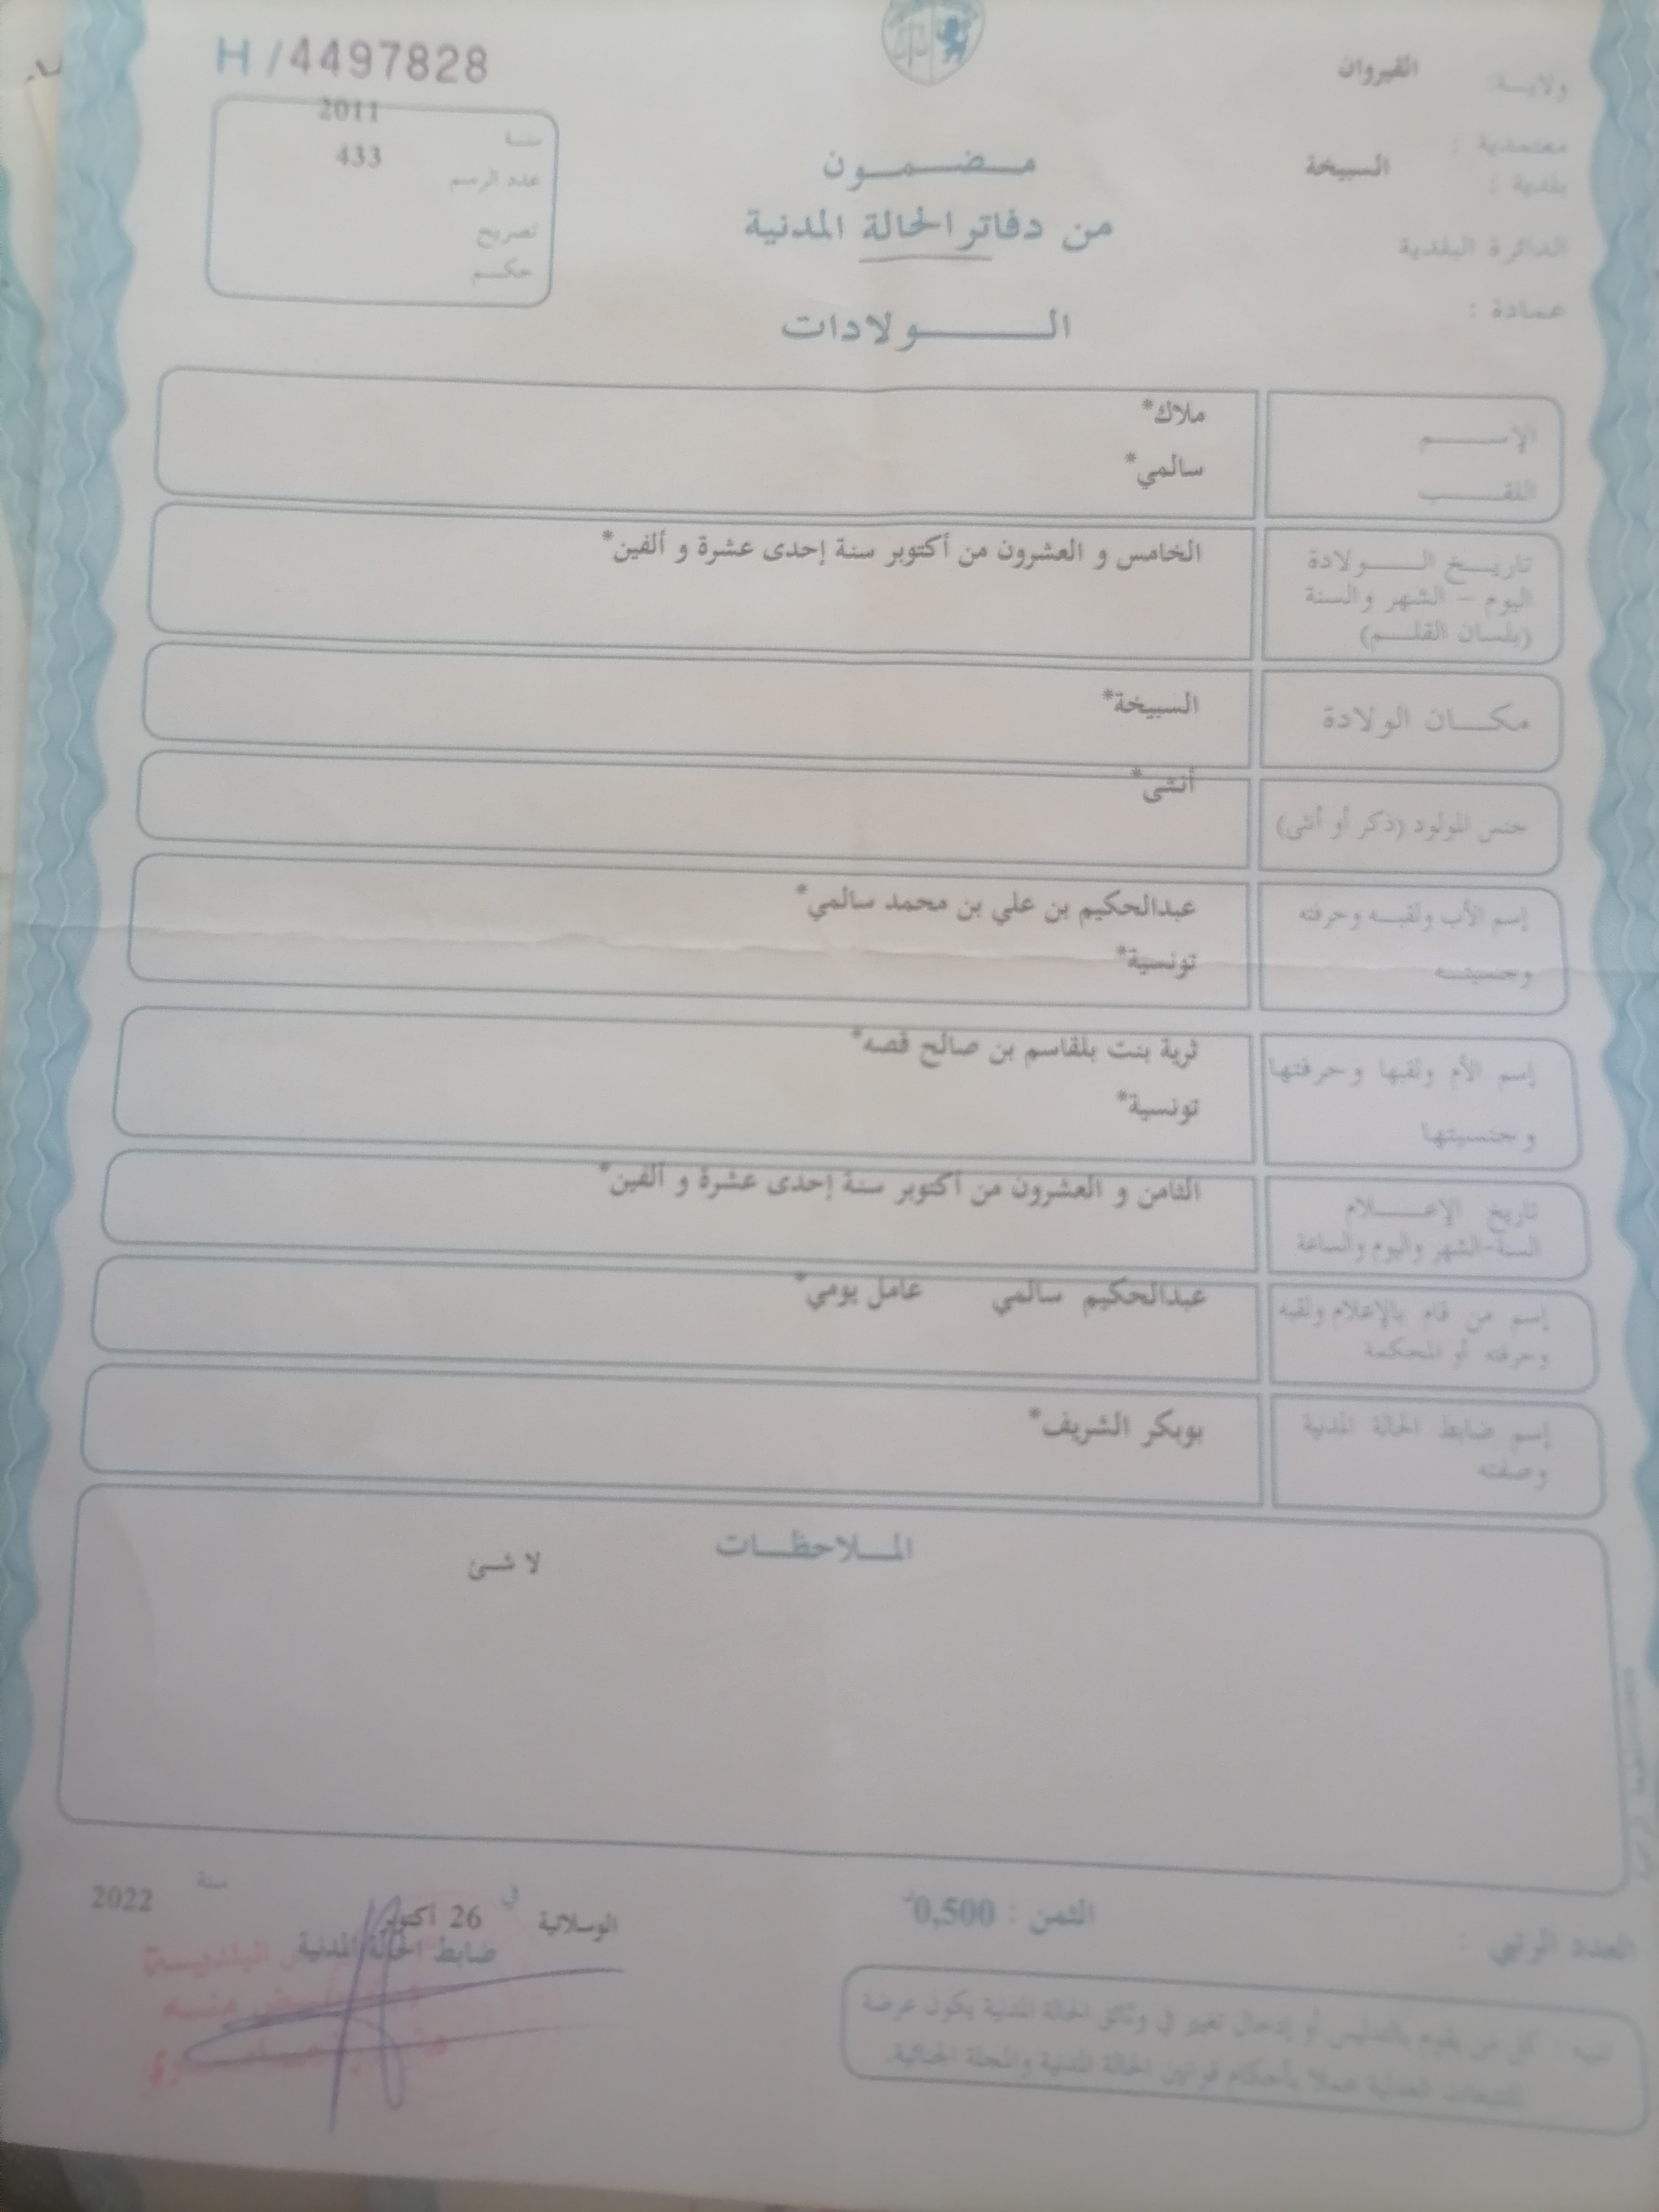 H / 4497828
ولايـة: القيروان
معتمدية :
بلدية : السبيخة
الدائرة البلدية
عمادة :
مـضـمـون
من دفاتر الحالة المدنية
الـولادات
سنة 2011
عدد الرسم 433
تصريح
حكـم
الإسـم ملاك*
اللقـب سالمي*
تاريـخ الـولادة الخامس و العشرون من أكتوبر سنة إحدى عشرة و ألفين*
اليوم – الشهر والسنة
(بلسان القلـم)
مكـان الولادة السبيخة*
جنس المولود (ذكر أو أنثى) أنثى*
إسم الأب ولقبـه وحرفته عبدالحكيم بن علي بن محمد سالمي*
وجنسيتـه تونسية*
إسم الأم ولقبها وحرفتها ثرية بنت بلقاسم بن صالح قصه*
وجنسيتها تونسية*
تاريخ الإعـلام الثامن و العشرون من أكتوبر سنة إحدى عشرة و ألفين*
السنة-الشهر واليوم والساعة
إسم من قام بالإعلام ولقبه عبدالحكيم سالمي عامل يومي*
وحرفته أو المحكمة
إسم ضابط الحالة المدنية بوبكر الشريف*
وصفته
المـلاحظـات
لا شـئ
الوسلاتية في 26 أكتوبر سنة 2022
ضابط الحالة المدنية
الثمن : 0,500د
العدد الرتبي :
تنبيه : كل من يقوم بالتدليس أو إدخال تغيير في وثائق الحالة المدنية يكون عرضة
للتتبعات العدلية عملا بأحكام قوانين الحالة المدنية والمجلة الجنائية.